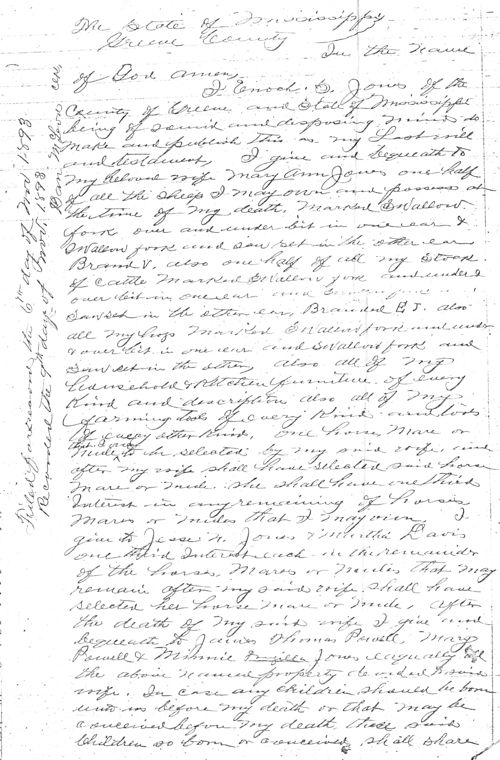 The State of Mississippi
Greene County
In the name
of God amen,
I, Enoch. S. Jones of the
County of Greene and State of Mississippi
being of sound and disposing mind do
make and publish this as my Last will
and testament, I give and bequeath to
my beloved wife Mary Ann Jones one half
of all the Sheep I may own and possess at
the time of my death, Marked Swallow
fork over and under bit in one ear &
Swallow fork and saw set in the other ear
Brand V. also one half of all my Stock
of Cattle Marked Swallow fork and under &
over bit in one ear and
Sawset in the other ear, Branded E J. also
all my hogs Marked Swallow fork and under
& over bit in one ear and Swallow fork and
Sawset in the other, also all of my
household & Kitchen furniture of every
Kind and description also all of my
farming tools of every Kind and tools
of every other Kind, one horse Mare or
Mule to be selected by my said wife, and
after my wife shall have selected said horse
Mare or Mule. she shall have one third
Interest in any remaining of horses
Mares or mules that I may own. I
give to Jesse N. Jones & Martha Davis
one third Interest each in the remainder
of the horses, Mares or Mules that may
remain after my said wife shall have
selected her horse mare or Mule, After
the death of my said wife I give and
bequeath to James Thomas Powell, Mary
Powell & Minnie Jones equally all
the above named property devided to said
wife. In case any children should be born
unto us before my death or that may be
conceived before my death, these said
Children so born or conceived shall share
Filed for record the 6th day of Nov 1893
Recorded the 9th day of Nov. 1893.
Dan McLeod